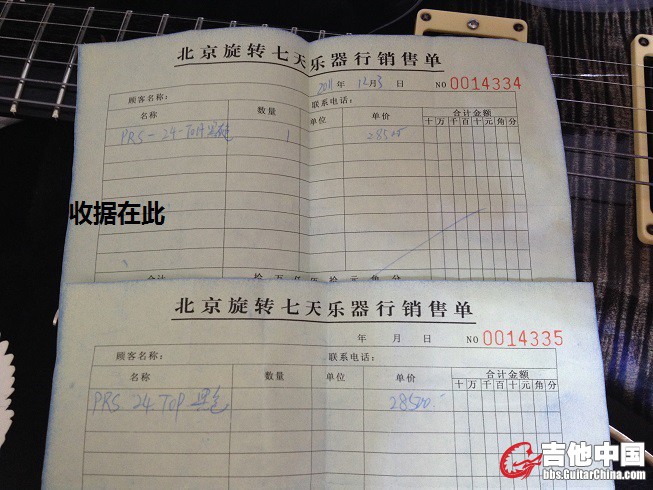 北京旋转七天乐器行销售单
2011年 12月3日 NO 0014334
顾客名称: 联系电话:
名称 数量 单位 单价 合计金额
十 万 千 百 十 元 角 分
PRS-24-TOP 黑色 1 28500
收据在此
合计 拾 万 仟 佰 拾 元 角 分
北京旋转七天乐器行销售单
年 月 日 NO 0014335
顾客名称: 联系电话:
名称 数量 单位 单价 合计金额
十 万 千 百 十 元 角 分
PRS 24.TOP 黑色 28500.
吉他中国
bbs.GuitarChina.com